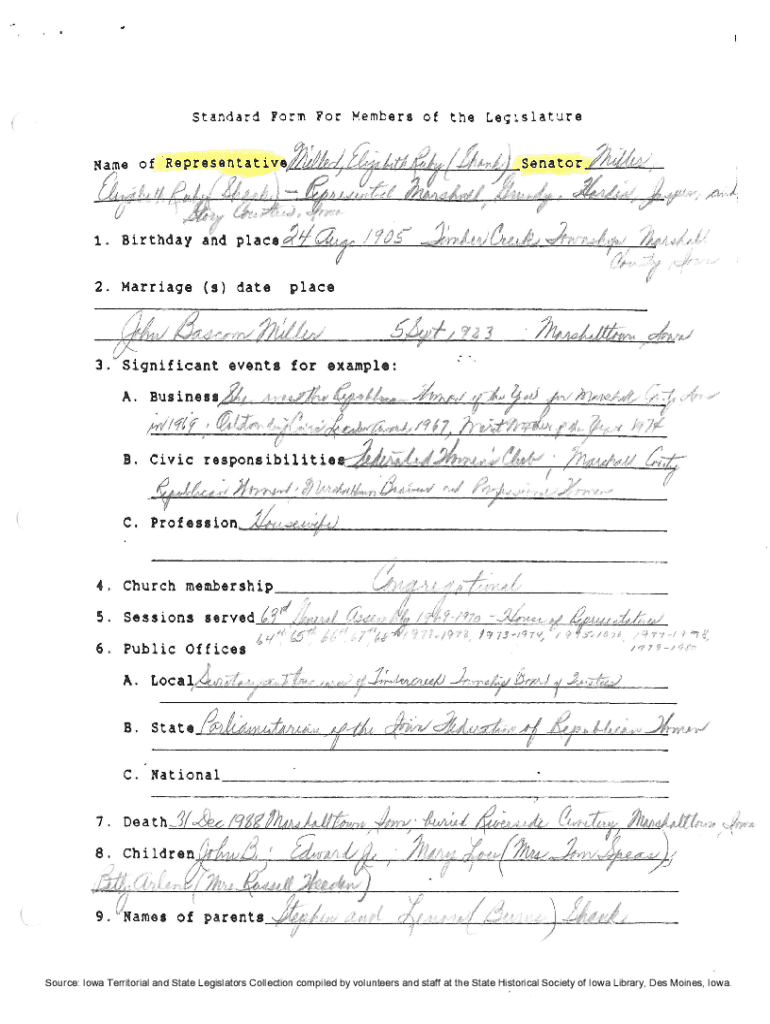 1
Standard Form For Members of the Legislature
Name of Representative Miller, Elizabeth Ruby (Shank) Senator Miller,
Elizabeth Ruby (Shank) - Represented Marshall, Grundy, Hardin, Jasper, and
Story Counties, Iowa
1. Birthday and place 24 Aug. 1905 Timber Creek Township, Marshall
County, Iowa
2. Marriage (s) date place
John Bascom Miller 5 Sept 1923 Marshalltown, Iowa
3. Significant events for example:
A. Business She was the Republican Woman of the Year for Marshall County, Iowa
in 1969; Outstanding Civic Leader Award, 1967, Merit Mother of the Year 1974
B. Civic responsibilities Federated Women's Club; Marshall County
Republican Women; Marshalltown Business and Professional Women
C. Profession Housewife
4. Church membership Congregational
5. Sessions served 63rd General Assembly 1969-1970 - House of Representatives
64th, 65th, 66th, 67th, 68th 1973-1974, 1977-1978,
1979-1980
6. Public Offices
A. Local Secretary and of Timbercreek Township Board of Trustees
B. State Parliamentarian of the Iowa Federation of Republican Women
C. National
7. Death 31 Dec 1988 Marshalltown, Iowa; buried Riverside Cemetery, Marshalltown, Iowa
8. Children John B.; Edward J.; Mary Lou (Mrs. Tom Speas);
Betty Arlene (Mrs. Russell )
9. Names of parents Stephen and Shank
Source: Iowa Territorial and State Legislators Collection compiled by volunteers and staff at the State Historical Society of Iowa Library, Des Moines, Iowa.